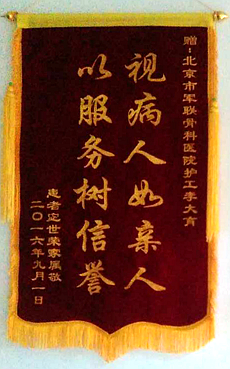 赠:北京市军联骨科医院护工李大育
视病人如亲人
以服务树信誉
患者定世荣家属敬
二〇一六年九月一日